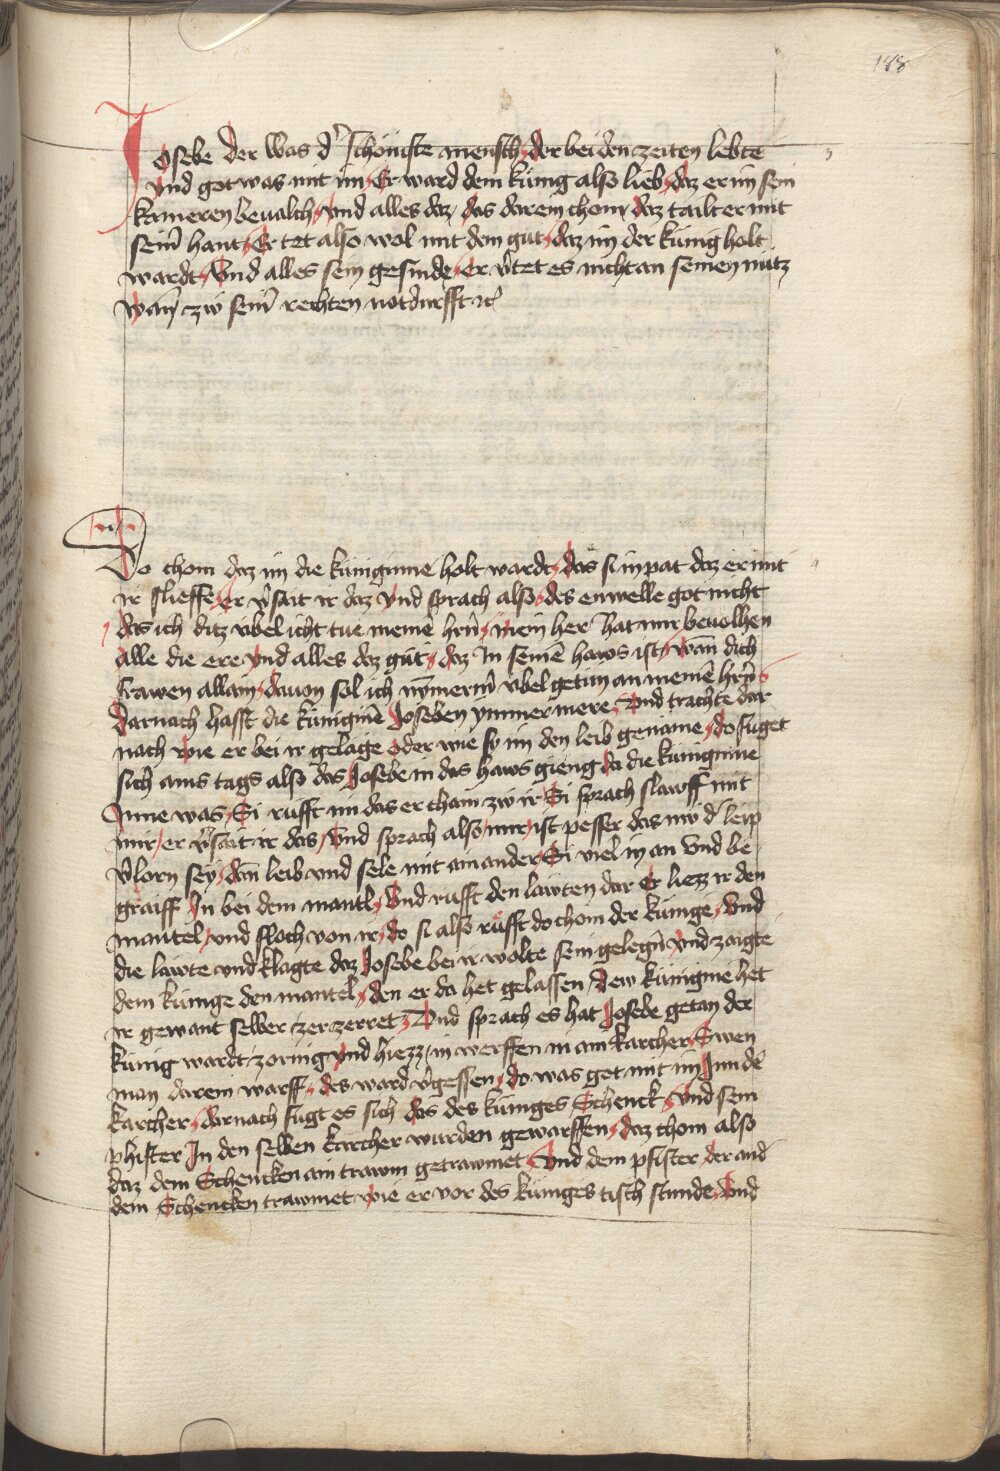 188
Josebe der was d' schönste mensch der bei den zeiten lebte
vnd got was mit im Er ward dem künig also lieb daz er im sein
kameren beualch vnd alles daz das darein chom daz tailt er mit
seim hant Er tet also wol mit dem gut daz im der künig holt
wardt Vnd alles sein gesinde er v'tet es nicht an seinen nutz
wann zw seim rechten notdurfft
Do chom daz im die küniginne holt wardt das si in pat daz er mit
ir slieffe er v'sait ir daz vnd sprach also des enwelle got nicht
das ich ditz übel icht tue meinē hrn mein her hat mir beuolhen
alle die ere vnd alles daz gut daz In seinē haws ist wan dich
frawen allain dauon sol ich übel getun an meinē hrn
darnach hasst die küniginē Joseben ymmer mere Vnd trachte dar
nach wie er bei ir gelage oder wie sy im den leib genäme do füget
sich ains tags also das Josebe in das haws gieng da die küniginne
Inne was Si rufft im das er cham zw ir Si sprach slawff mit
mir er v'sait ir das Vnd sprach also mir ist pesser das nw d' leip
v'lorn sey dan leib vnd sele mit ain ander Si viel in an Vnd be
graiff In bei dem mantl Vnd rufft den lawten dar Er liezz ir den
mantel vnd floch von ir do si also rüfft do chom der künige Vnd
die läwte vnd klagte daz Josebe bei ir wolte sein gelegn vnd zaigte
dem künige den mantel den er do het gelassen Dew küniginē het
ir gewant selber zerzerret Vnd sprach es hat Josebe getan der
künig wardt zornig vnd hiezz in werffen in ain karcher Swen
man darein warff des ward v'gessen do was got mit im Inn dē
karcher darnach fugt es sich das des küniges Schenck Vnd sein
phister In den selben karcher wurden geworffen daz chom also
daz dem Schencken ain trawm getrawmet Vnd dem pfister der and'
dem Schencken trawmet wie er vor des küniges tisch stunde Vnd